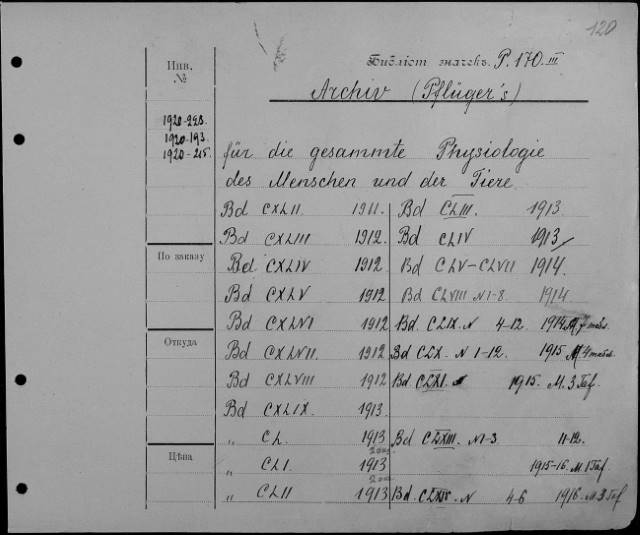 120
Инв. №
Библіот. значекъ P. 170 III
Archiv (Pflüger's)
1920-228.
1920-193.
1920-215.
für die gesammte Physiologie
des Menschen und der Tiere.
Bd CXLII 1911. Bd CLIII. 1913.
Bd CXLIII 1912. Bd CLIV 1913
По заказу
Bd. CXLIV 1912 Bd CLV-CLVII 1914.
Bd CXLV 1912 Bd CLVIII N 1-8. 1914
Bd CXLVI 1912 Bd CLIX. N 4-12. 1914
Откуда
Bd CXLVII 1912 Bd CLX. N 1-12. 1915
Bd CXLVIII 1912 Bd CLXI. 1915. M. 3 Taf.
Bd CXLIX. 1913.
„ CL. 1913 Bd CLXIII. N 1-3. 11-12.
Цѣна
„ CLI. 1913 1915-16. M. 1 Taf.
„ CLII 1913 Bd. CLXIV. N 4-6 1916. M. 3 Taf